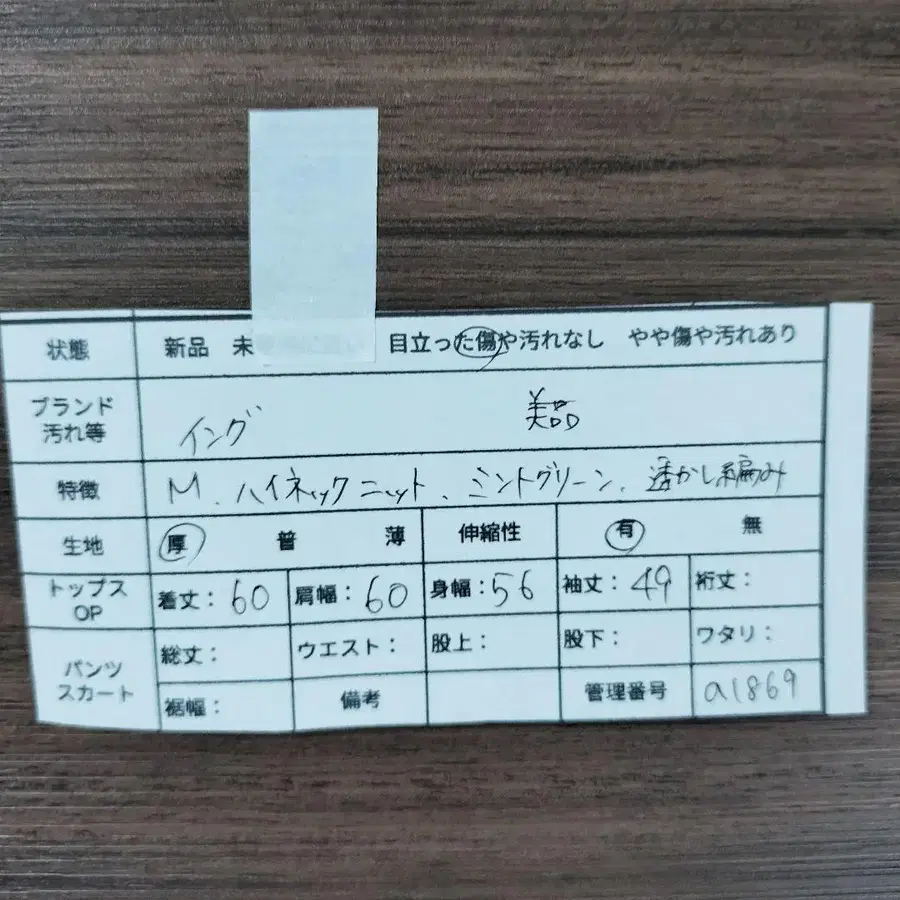 状態 新品 未 目立った傷や汚れなし やや傷や汚れあり
ブランド
汚れ等 イング 美品
特徴 M、ハイネックニット、ミントグリーン、透かし編み
生地 厚 普 薄 伸縮性 有 無
トップス
OP 着丈：60 肩幅：60 身幅：56 袖丈：49 裄丈：
総丈： ウエスト： 股上： 股下： ワタリ：
パンツ
スカート
裾幅： 備考 管理番号 a1869